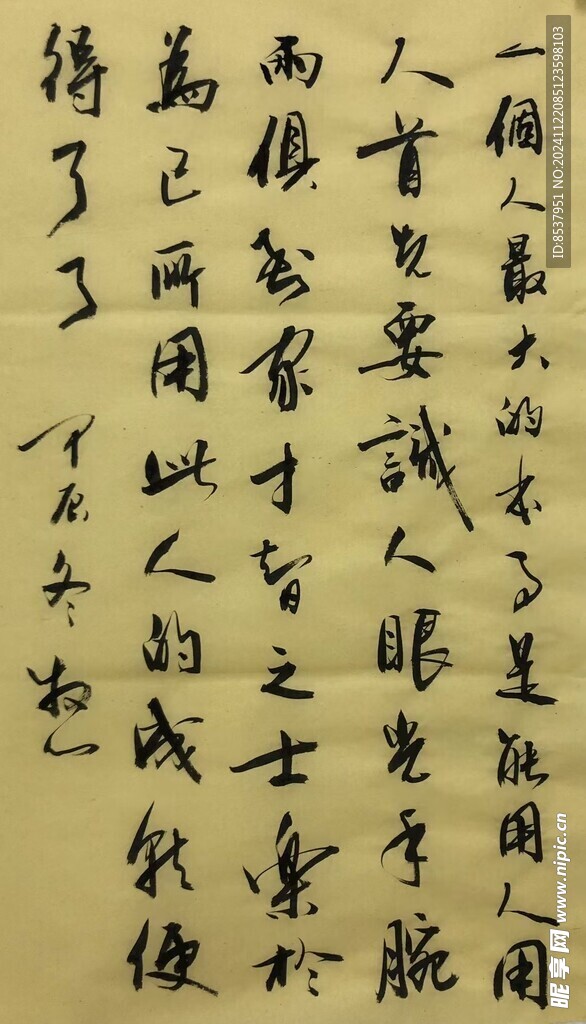 一個人最大的本事是能用人用
人首先要識人眼光手腕
兩俱到家才智之士樂於
為己所用此人的成就便
得了了
甲辰冬
ID:8537951 NO:20241122085123598103
昵享网 www.nipic.cn